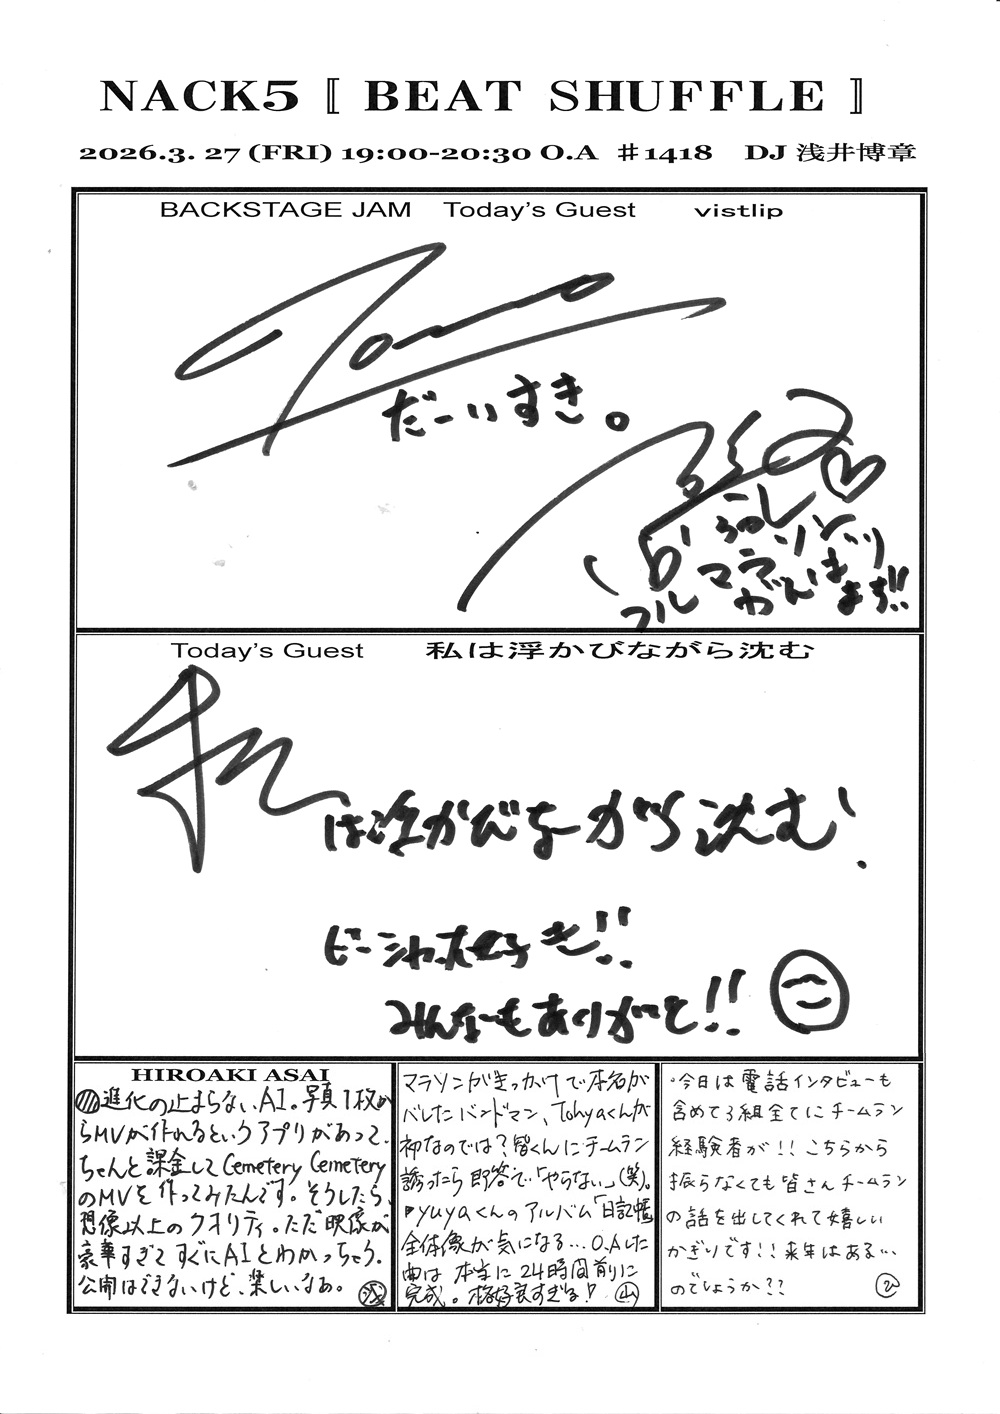 NACK5 〚 BEAT SHUFFLE 〛
2026.3. 27 (FRI) 19:00-20:30 O.A ♯1418 DJ 浅井博章
BACKSTAGE JAM Today's Guest vistlip
Tohya
だーいすき。
フルマラソン
がんばり
ます!!
Today's Guest 私は浮かびながら沈む
私は浮かびながら沈む
ビーシャ大好き!!
みんなもありがと!!
HIROAKI ASAI
進化の止まらないAI。写真1枚か
らMVが作れるというアプリがあって、
ちゃんと課金してCemetery Cemetery
のMVを作ってみたんです。そうしたら、
想像以上のクオリティ。ただ映像が
豪華すぎてすぐにAIとわかっちゃう。
公開はできないけど、楽しいなぁ。 浅
マラソンがきっかけで本名が
バレしたバンドマン、Tohyaくんが
初なのでは?皆くんにチームラン
誘ったら即答で「やらない」(笑)。
yuyaくんのアルバム「日記帳」
全体像が気になる…O.Aした
曲は本当に24時間前に
完成。格好良すぎる! 山
・今日は電話インタビューも
含めて3組全てにチームラン
経験者が!!こちらから
振らなくても皆さんチームラン
の話を出してくれて嬉しい
かぎりです!!来年はある…
のでしょうか?? ひ